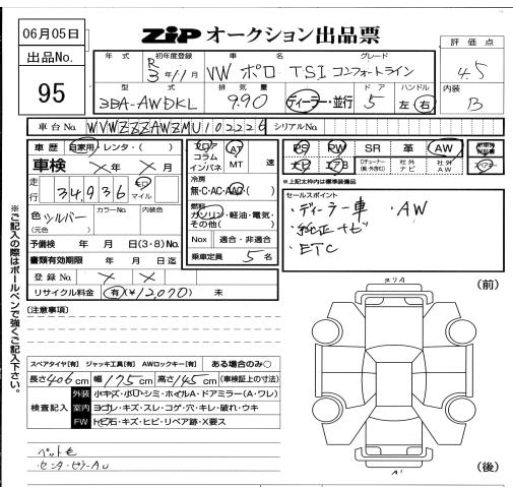 06月05日
ZIP オークション出品票
出品No.
95
評価点
4.5
内装
B
年式 初年度登録 車名 グレード
R 3年/1月 VW ポロ TSI コンフォートライン
型式 排気量 ドア ハンドル
3BA-AWDKL 990 ディーラー・並行 5 左 右
車台No. WVWZZZAWZMU102226 シリアルNo.
車歴 自家用 レンタ・( )
車検 ×年 ×月
走行 34,936 km マイル
色 シルバー カラーNo. 内装色
(元色)
予備検 年 月 日(3・8)No.
書類有効期限 年 月 日迄
登録No.
リサイクル料金 有(¥12,070) 未
フロア AT
コラム
インパネ MT 速
冷房
無・C・AC・AAC・( )
燃料
ガソリン・軽油・電気・
その他( )
Nox 適合・非適合
乗車定員 5名
PS PW SR 革 AW
ナビ エアB 社外ナビ 社外AW
※上記太枠内は標準装備品
セールスポイント
・ディーラー車 ・AW
・純正ナビ
・ETC
※ご記入の際はボールペンで強くご記入下さい。
【注意事項】
スペアタイヤ【有】 ジャッキ工具【有】 AWロックキー【有】 ある場合のみ○
長さ406cm 幅175cm 高さ145cm (車検証上の寸法)
検査記入
外装 小キズ・ボロ・シミ・ホイルA・ドアミラー(A・ワレ)
室内 ヨゴレ・キズ・スレ・コゲ・穴・キレ・破れ・ウキ
FW トビ石・キズ・ヒビ・リペア跡・X要ス
ペット毛
センターピラーAU
(前)
(後)
A1